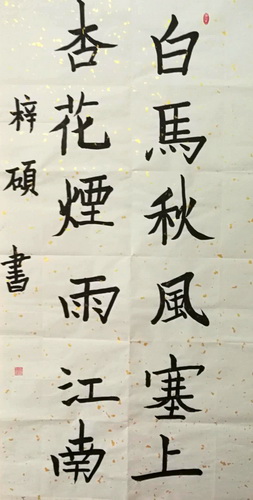 白馬秋風塞上
杏花煙雨江南
梓碩書